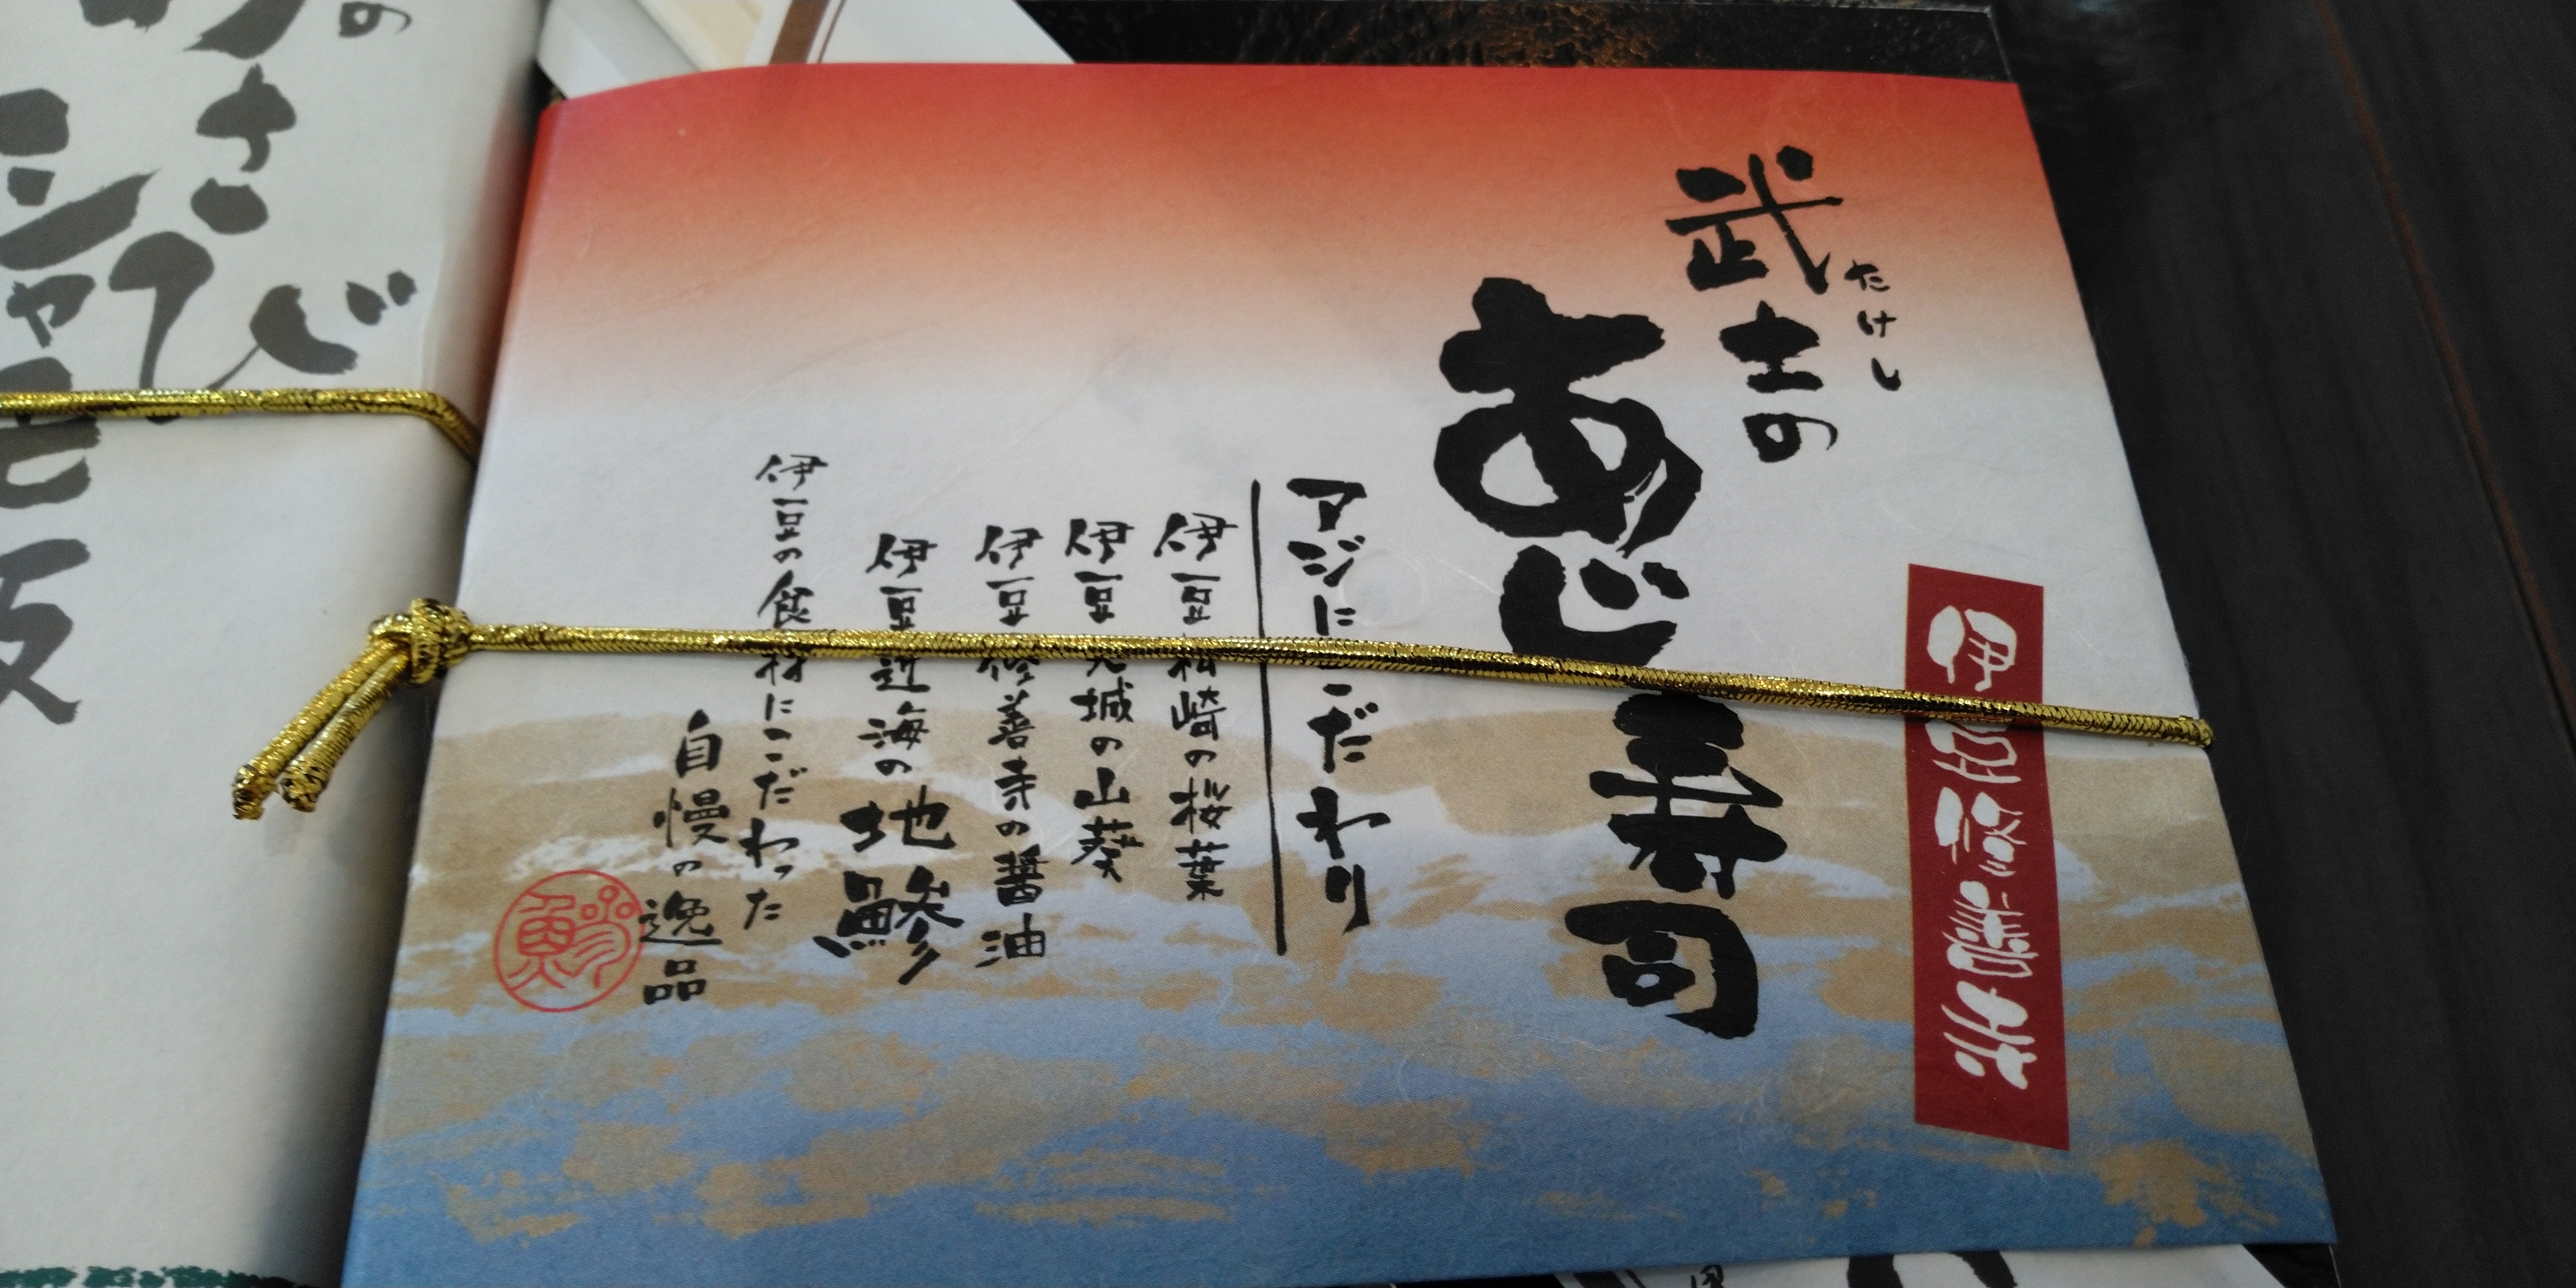 伊豆修善寺
武士の
たけし
あじ寿司
アジにこだわり
伊豆松崎の桜葉
伊豆天城の山葵
伊豆修善寺の醤油
伊豆近海の地鯵
伊豆の食材にこだわった
自慢の逸品
鯵
わさび
シャモ飯